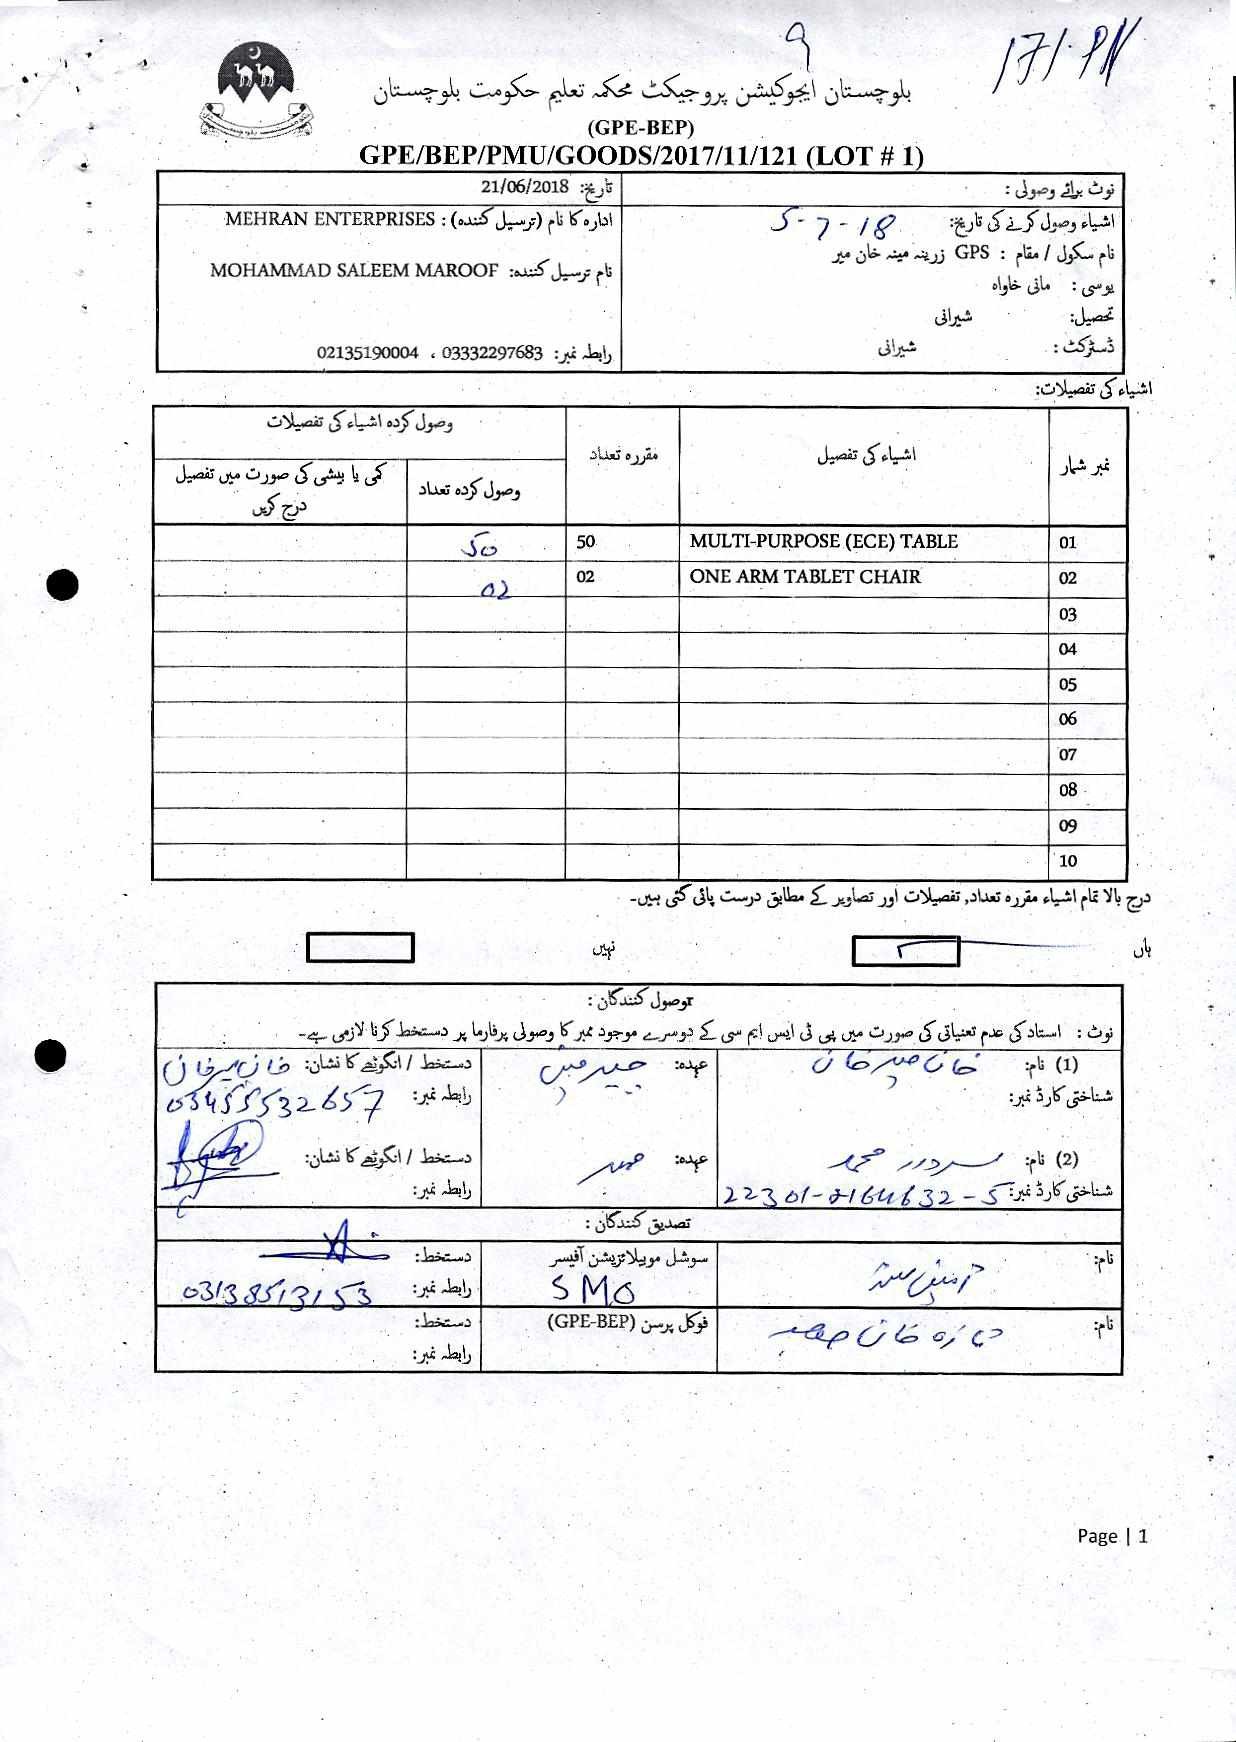 بلوچستان ایجوکیشن پروجیکٹ محکمہ تعلیم حکومت بلوچستان
(GPE-BEP)
GPE/BEP/PMU/GOODS/2017/11/121 (LOT # 1)
نوٹ برائے وصولی :
تاریخ: 21/06/2018
اشیاء وصول کرنے کی تاریخ: 5-7-18
نام سکول / مقام : GPS زرینہ مینہ خان میر
یوسی : مانی خاواہ
تحصیل: شیرانی
ڈسٹرکٹ : شیرانی
ادارہ کا نام (ترسیل کنندہ) : MEHRAN ENTERPRISES
نام ترسیل کنندہ: MOHAMMAD SALEEM MAROOF
رابطہ نمبر: 03332297683 ، 02135190004
اشیاء کی تفصیلات:
نمبر شمار
اشیاء کی تفصیل
مقررہ تعداد
وصول کردہ اشیاء کی تفصیلات
وصول کردہ تعداد
کمی یا بیشی کی صورت میں تفصیل
درج کریں
01 MULTI-PURPOSE (ECE) TABLE 50 50
02 ONE ARM TABLET CHAIR 02 02
03
04
05
06
07
08
09
10
درج بالا تمام اشیاء مقررہ تعداد, تفصیلات اور تصاویر کے مطابق درست پائی گئی ہیں۔
ہاں
نہیں
توصول کنندگان :
نوٹ : استاد کی عدم تعنیاتی کی صورت میں پی ٹی ایس ایم سی کے دوسرے موجود ممبر کا وصولی پرفارما پر دستخط کرنا لازمی ہے۔
(1) نام: خان میر خان
شناختی کارڈ نمبر:
عہدہ: چیرمین
دستخط / انگوٹھے کا نشان: خان میر خان
رابطہ نمبر: 03455532657
(2) نام: سرور محمد
شناختی کارڈ نمبر: 22301-8164632-5
عہدہ: ممبر
دستخط / انگوٹھے کا نشان:
رابطہ نمبر:
تصدیق کنندگان :
نام:
سوشل موبیلائزیشن آفیسر
SMO
دستخط:
رابطہ نمبر: 03138513153
نام:
فوکل پرسن (GPE-BEP)
دستخط:
رابطہ نمبر:
Page | 1